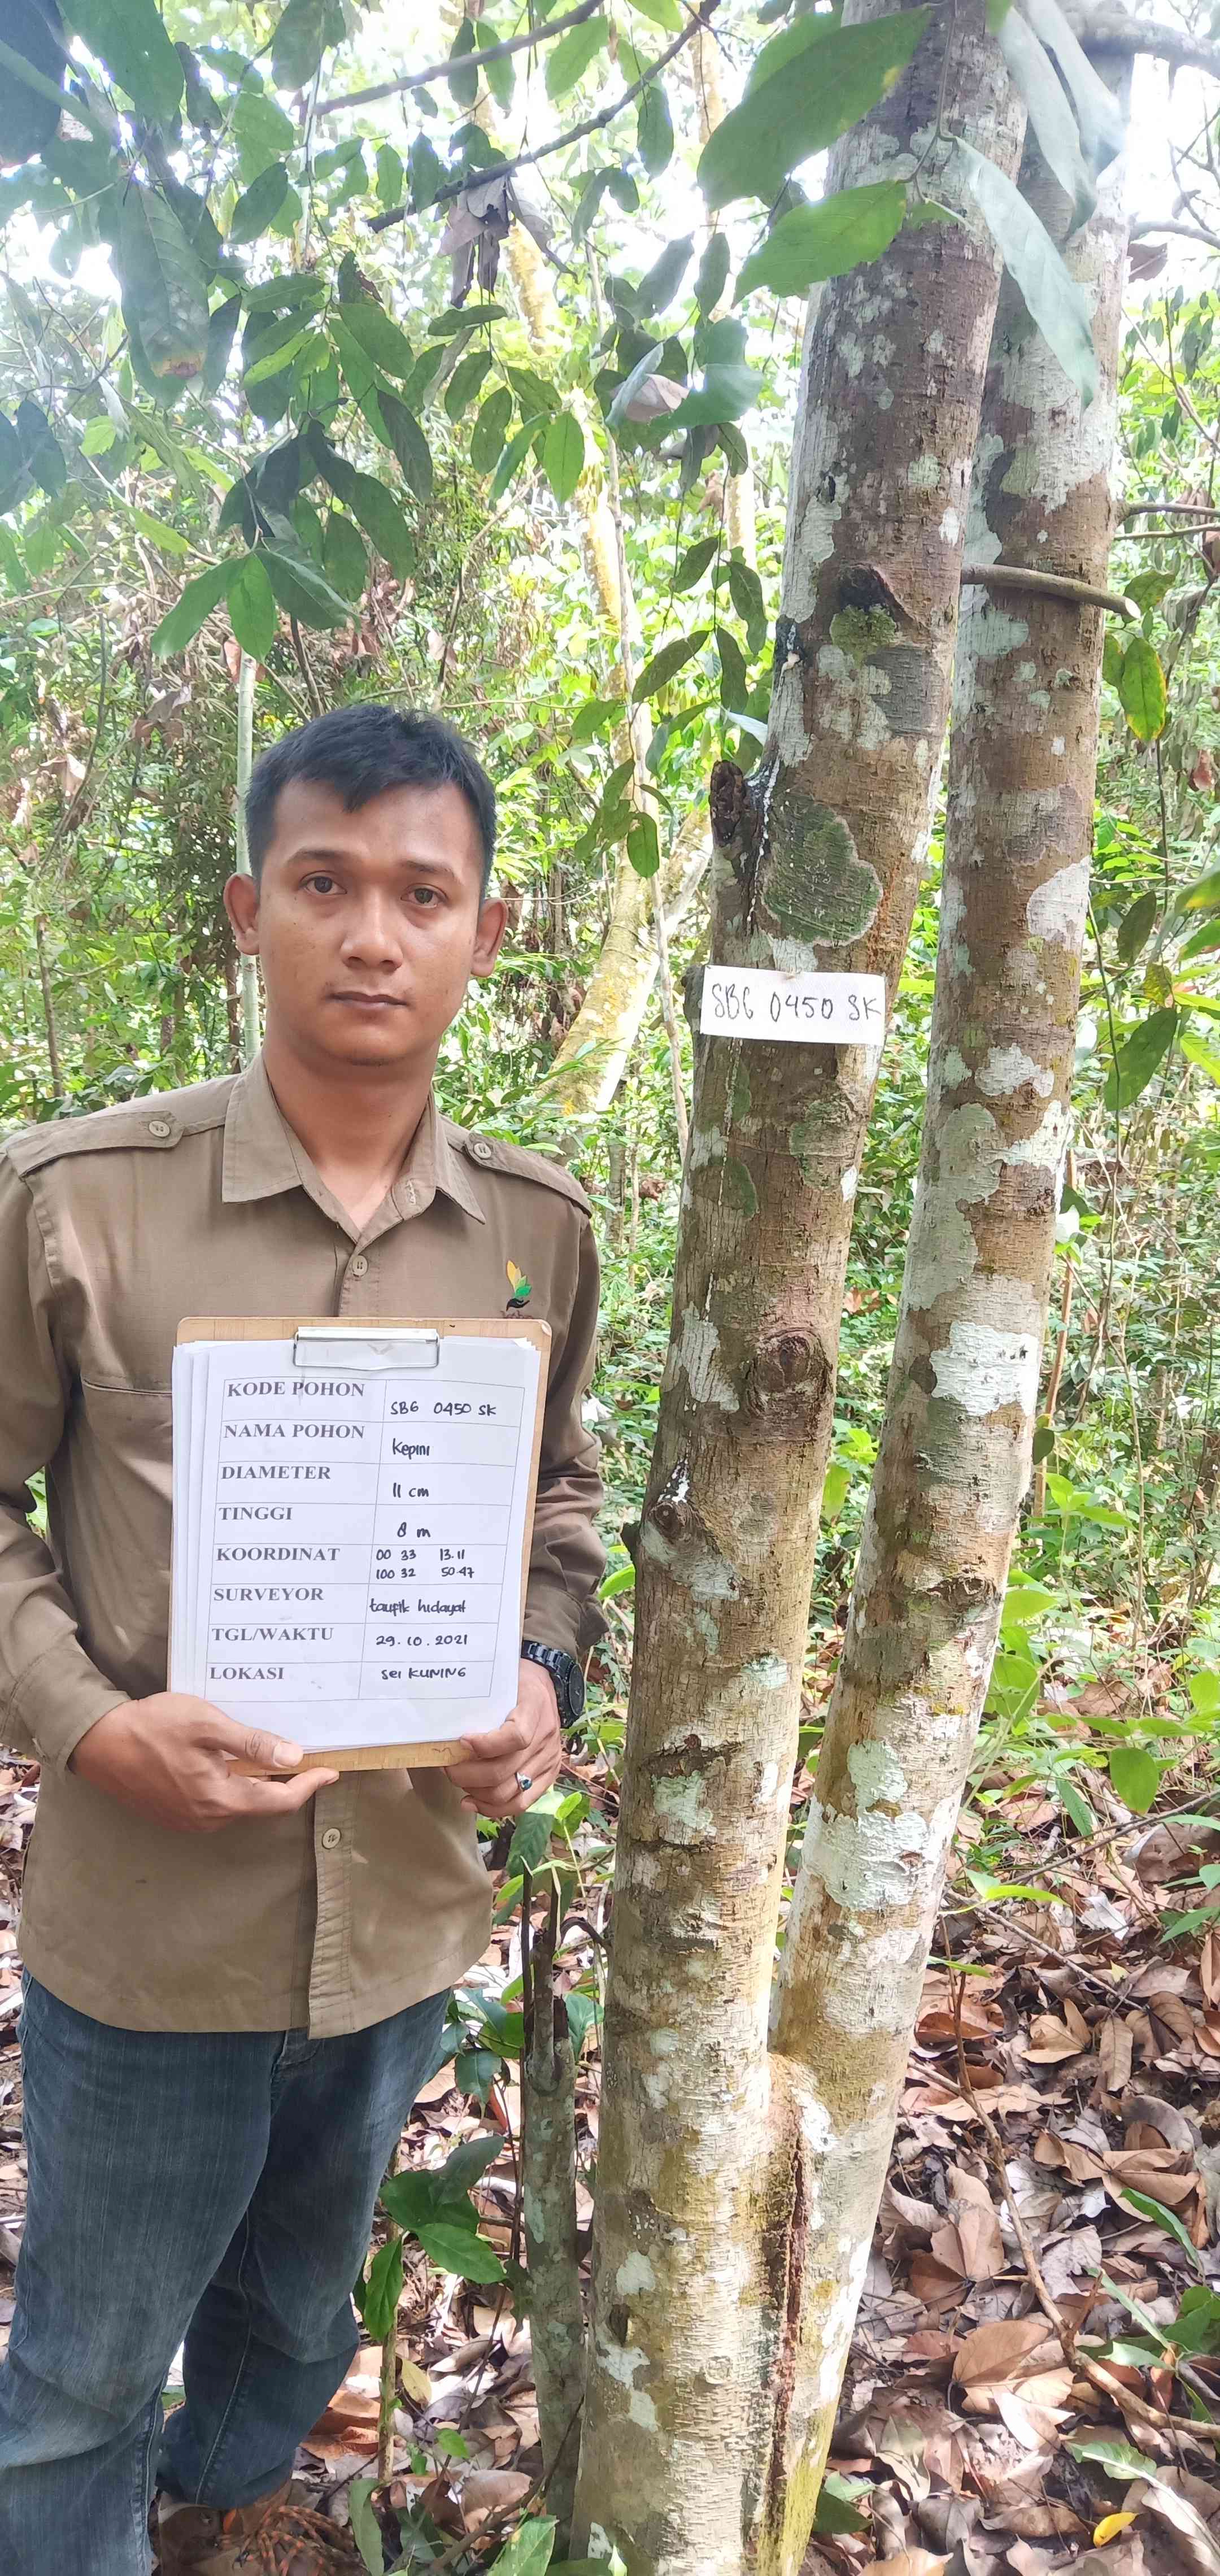 SBG 0450 SK
KODE POHON SBG 0450 SK
NAMA POHON Kepini
DIAMETER 11 cm
TINGGI 8 m
KOORDINAT 00 33 13.11
100 32 50.47
SURVEYOR taufik hidayat
TGL/WAKTU 29.10.2021
LOKASI sei KUNING